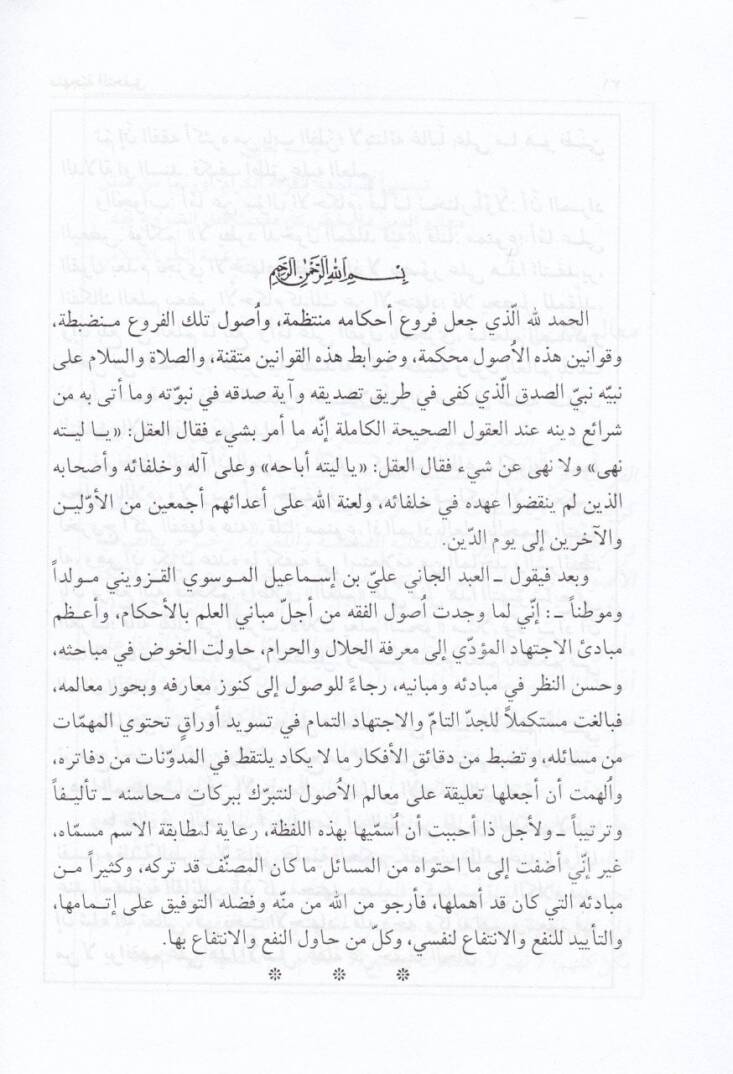 بسم الله الرحمن الرحيم
الحمد لله الّذي جعل فروع أحكامه منتظمة، وأصول تلك الفروع منضبطة،
وقوانين هذه الأصول محكمة، وضوابط هذه القوانين متقنة، والصلاة والسلام على
نبيّه نبيّ الصدق الّذي كفى في طريق تصديقه وآية صدقه في نبوّته وما أتى به من
شرائع دينه عند العقول الصحيحة الكاملة إنّه ما أمر بشيء فقال العقل: «يا ليته
نهى» ولا نهى عن شيء فقال العقل: «يا ليته أباحه» وعلى آله وخلفائه وأصحابه
الذين لم ينقضوا عهده في خلفائه، ولعنة الله على أعدائهم أجمعين من الأوّلين
والآخرين إلى يوم الدّين.
وبعد فيقول ـ العبد الجاني عليّ بن إسماعيل الموسوي القزويني مولداً
وموطناً ـ: إنّي لما وجدت أُصول الفقه من أجلّ مباني العلم بالأحكام، وأعظم
مبادئ الاجتهاد المؤدّي إلى معرفة الحلال والحرام، حاولت الخوض في مباحثه،
وحسن النظر في مبادئه ومبانيه، رجاءً للوصول إلى كنوز معارفه وبحور معالمه،
فبالغت مستكملاً للجدّ التامّ والاجتهاد التمام في تسويد أوراقٍ تحتوي المهمّات
من مسائله، وتضبط من دقائق الأفكار ما لا يكاد يلتقط في المدوّنات من دفاتره،
وأُلهمت أن أجعلها تعليقة على معالم الأُصول لنتبرّك ببركات محاسنه ـ تأليفاً
وترتيباً ـ ولأجل ذا أحببت أن أُسمّيها بهذه اللفظة، رعاية لمطابقة الاسم مسمّاه،
غير إنّي أضفت إلى ما احتواه من المسائل ما كان المصنّف قد تركه، وكثيراً من
مبادئه التي كان قد أهملها، فأرجو من الله من منّه وفضله التوفيق على إتمامها،
والتأييد للنفع والانتفاع لنفسي، وكلّ من حاول النفع والانتفاع بها.